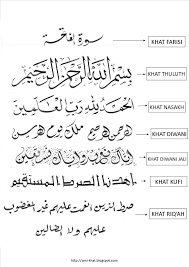 سورة الفاتحة
KHAT FARISI
بسم الله الرحمن الرحيم
KHAT THULUTH
الحمد لله رب العالمين
KHAT NASAKH
الرحمن الرحيم ملك يوم الدين
KHAT DIWANI
إياك نعبد وإياك نستعين
KHAT DIWANI JALI
اهدنا الصرط المستقيم
KHAT KUFI
صرط الذين أنعمت عليهم غير المغضوب
KHAT RIQ'AH
عليهم ولا الضالين
http://seni-khat.blogspot.com